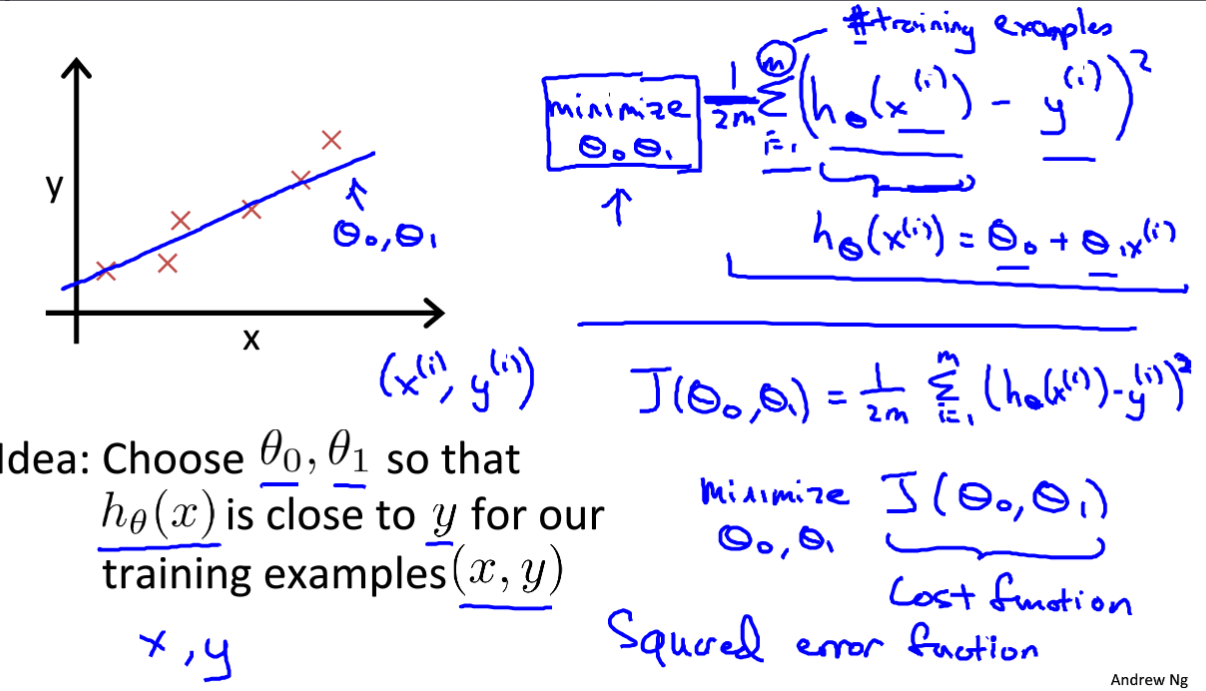 #training examples
minimize 1/2m m Σ i=1 (hθ(x^(i)) - y^(i))²
θ₀ θ₁
hθ(x^(i)) = θ₀ + θ₁x^(i)
y
θ₀, θ₁
x
(x^(i), y^(i))
J(θ₀, θ₁) = 1/2m m Σ i=1 (hθ(x^(i)) - y^(i))²
Idea: Choose θ₀, θ₁ so that
hθ(x) is close to y for our
training examples (x, y)
x, y
minimize J(θ₀, θ₁)
θ₀, θ₁
Cost function
Squared error function
Andrew Ng